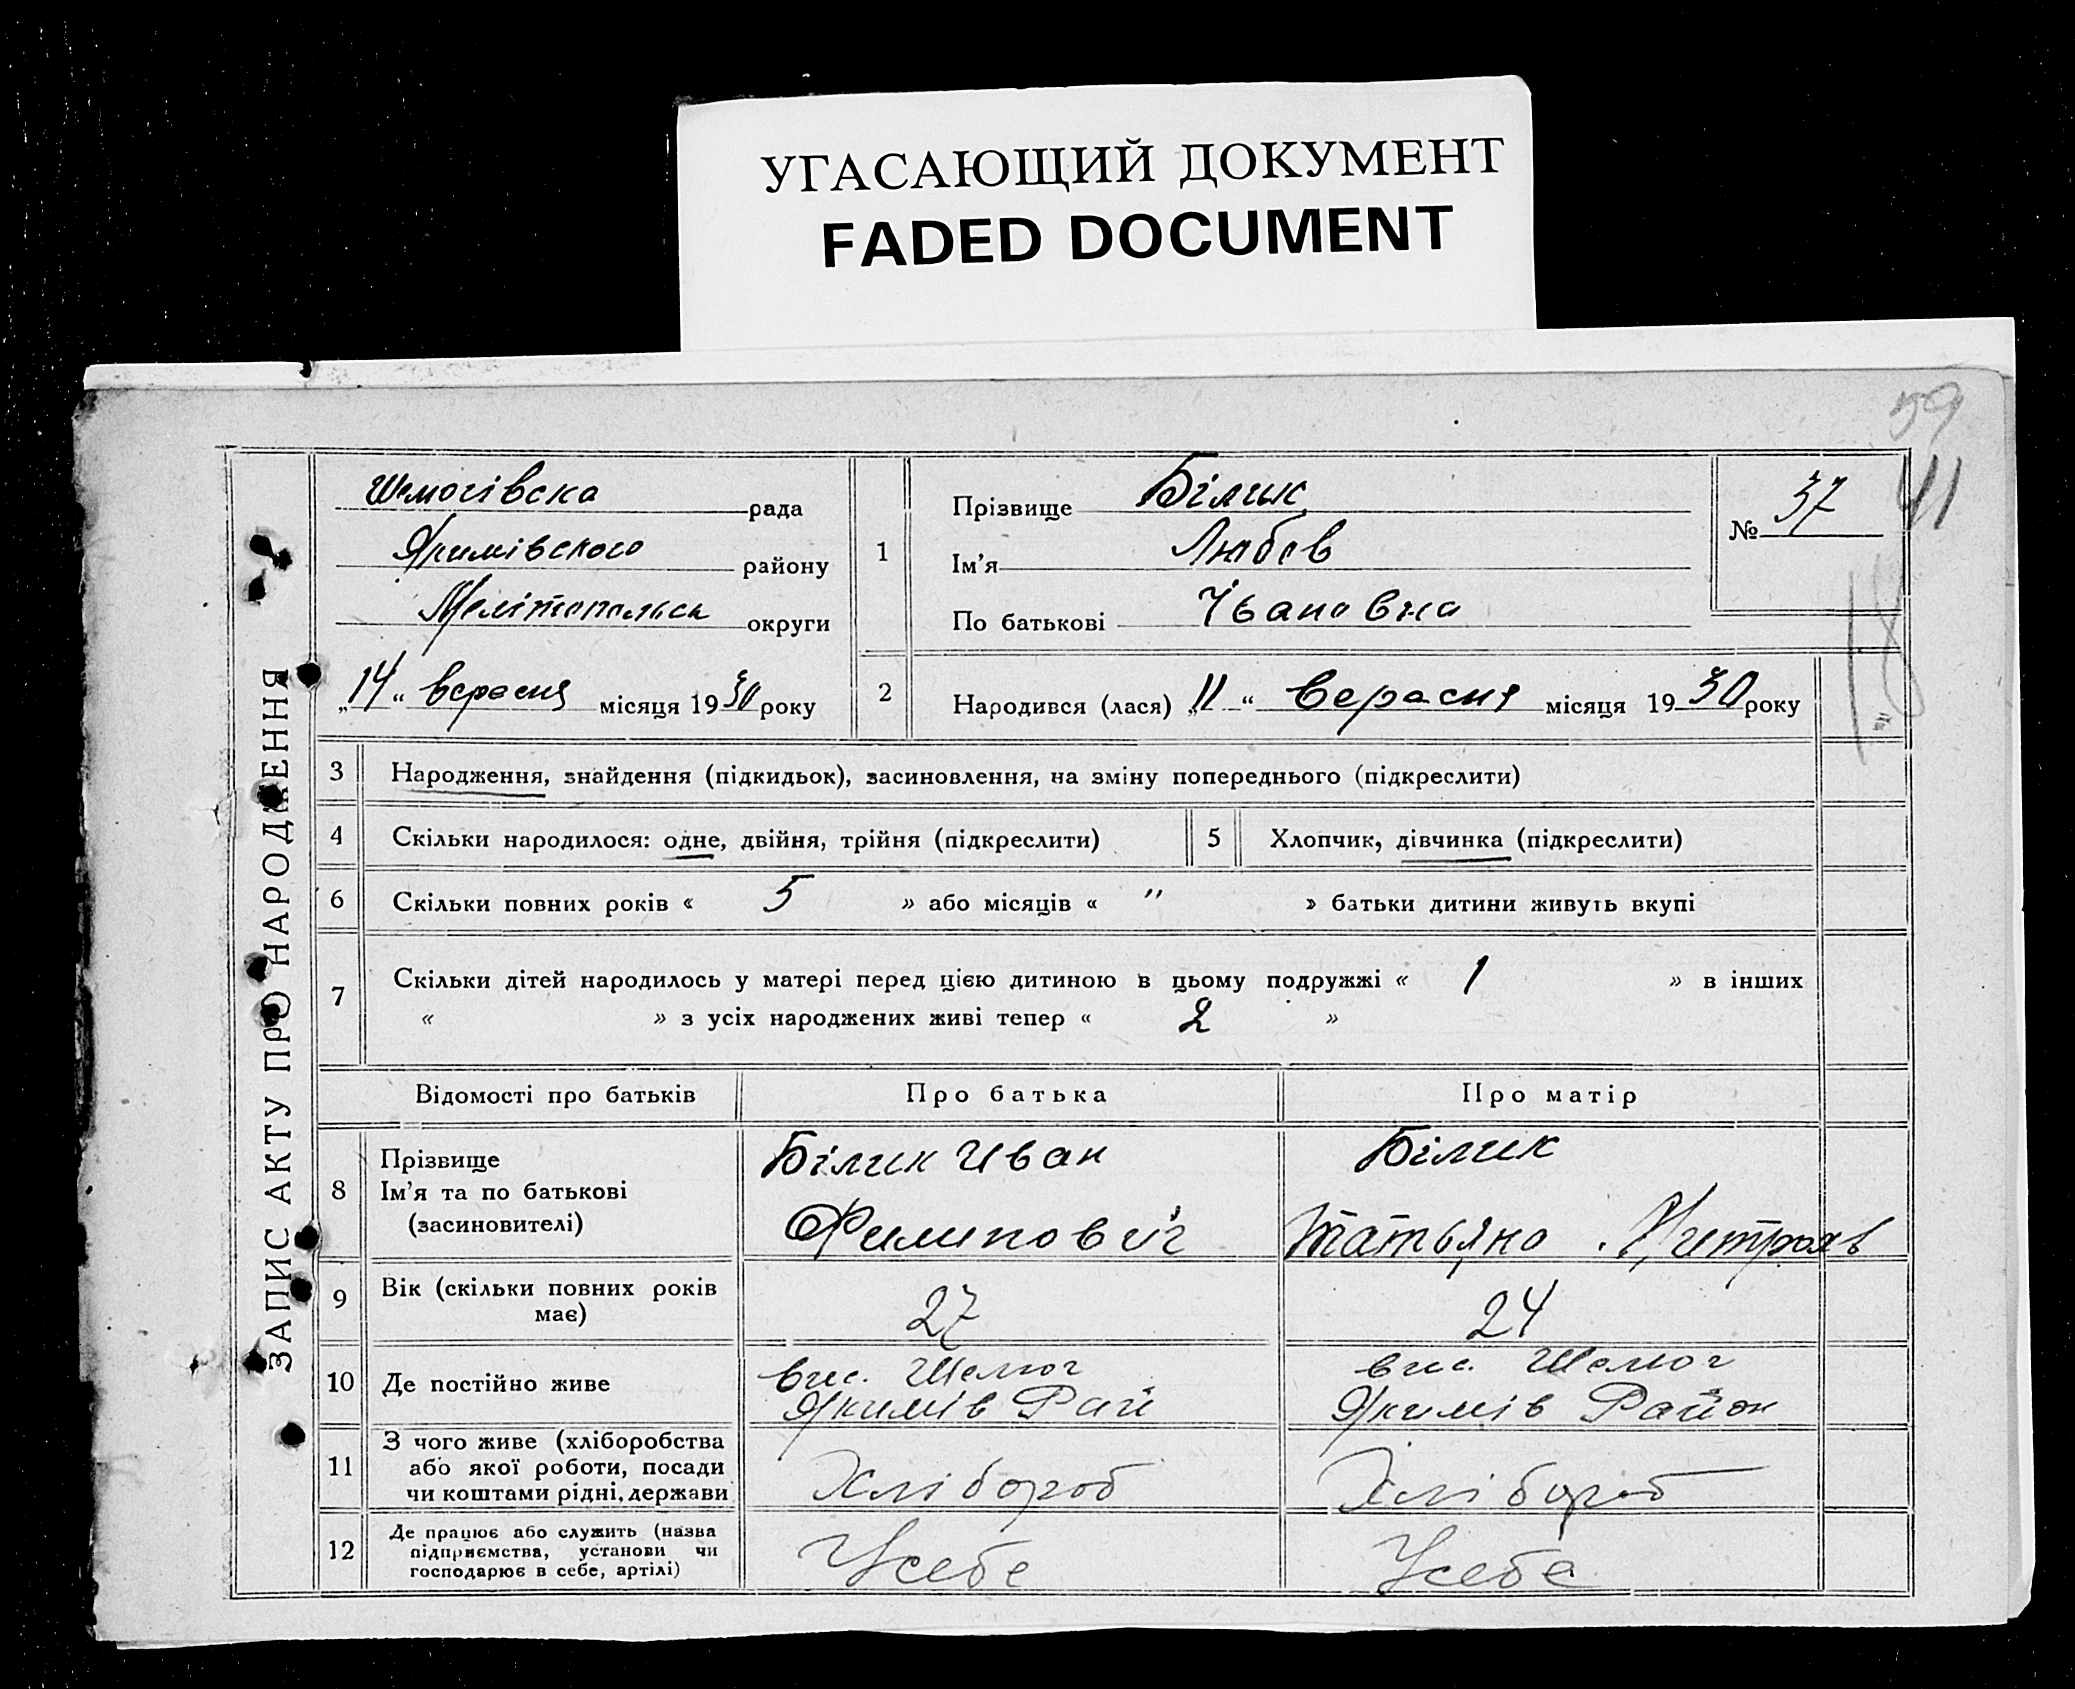 УГАСАЮЩИЙ ДОКУМЕНТ
FADED DOCUMENT
59
41
ЗАПИС АКТУ ПРО НАРОДЖЕННЯ
рада
Якимівського району
Мелітопольськ округи
„14“ вересня місяця 1930 року
1
Прізвище Білик
Ім'я Любов
По батькові Івановна
№ 37
2
Народився (лася) „11“ Вересня місяця 1930 року
3 Народження, знайдення (підкидьок), засиновлення, на зміну попереднього (підкреслити)
4 Скільки народилося: одне, двійня, трійня (підкреслити)
5 Хлопчик, дівчинка (підкреслити)
6 Скільки повних років « 5 » або місяців « " » батьки дитини живуть вкупі
7 Скільки дітей народилось у матері перед цією дитиною в цьому подружжі « 1 » в інших
« » з усіх народжених живі тепер « 2 »
Відомості про батьків Про батька Про матір
8 Прізвище
Ім'я та по батькові
(засиновителі)
Білик Иван
Филипович
Білик
Татьяна
9 Вік (скільки повних років
має)
27
24
10 Де постійно живе
вис. Шелюг
Якимів Рай
вис. Шелюг
Якимів Район
11 З чого живе (хліборобства
або якої роботи, посади
чи коштами рідні, держави
Хлібороб
Хлібороб
12 Де працює або служить (назва
підприємства, установи чи
господарює в себе, артілі)
Усебе
Усебе